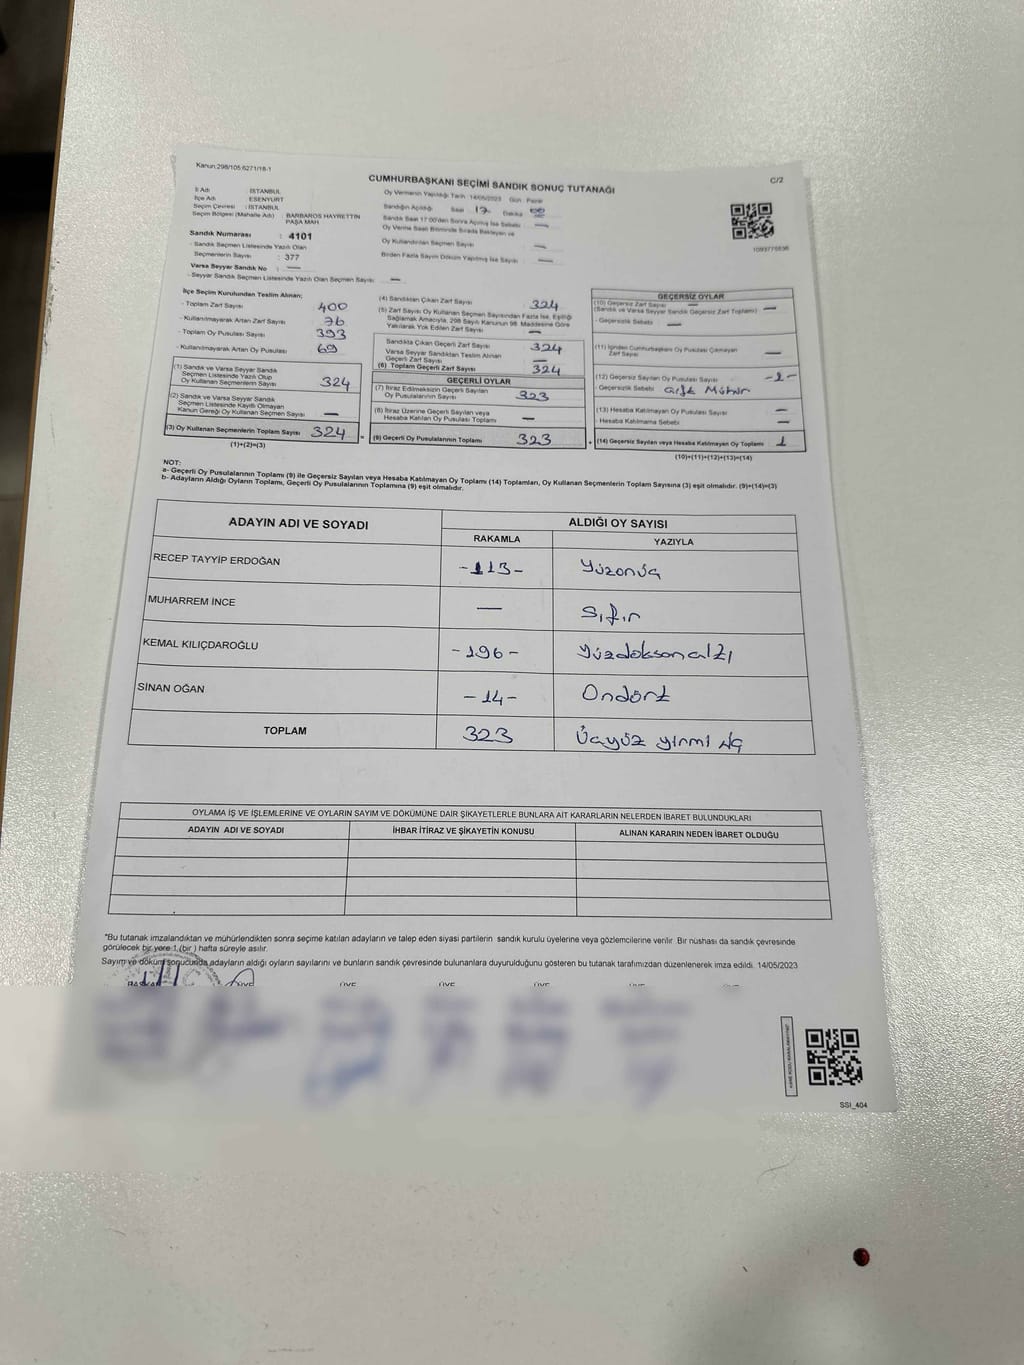 Kanun.298/105:6271/18-1
C/2
CUMHURBAŞKANI SEÇİMİ SANDIK SONUÇ TUTANAĞI
İl Adı : İSTANBUL
İlçe Adı : ESENYURT
Seçim Çevresi : İSTANBUL
Seçim Bölgesi (Mahalle Adı) : BARBAROS HAYRETTİN PAŞA MAH
Sandık Numarası : 4101
- Sandık Seçmen Listesinde Yazılı Olan
Seçmenlerin Sayısı : 377
Varsa Seyyar Sandık No : —
- Seyyar Sandık Seçmen Listesinde Yazılı Olan Seçmen Sayısı : —
Oy Vermenin Yapıldığı Tarih 14/05/2023 Gün Pazar
Sandığın Açıldığı Saat 17 Dakika 00
Sandık Saat 17:00'den Sonra Açılmış İse Sebebi —
Oy Verme Saati Bitiminde Sırada Bekleyen ve
Oy Kullandırılan Seçmen Sayısı —
Birden Fazla Sayım Döküm Yapılmış İse Sayısı —
1093776836
İlçe Seçim Kurulundan Teslim Alınan;
- Toplam Zarf Sayısı 400
- Kullanılmayarak Artan Zarf Sayısı 76
- Toplam Oy Pusulası Sayısı 393
- Kullanılmayarak Artan Oy Pusulası 69
(1) Sandık ve Varsa Seyyar Sandık
Seçmen Listesinde Yazılı Olup
Oy Kullanan Seçmenlerin Sayısı 324
(2) Sandık ve Varsa Seyyar Sandık
Seçmen Listesinde Kayıtlı Olmayan
Kanun Gereği Oy Kullanan Seçmen Sayısı —
(3) Oy Kullanan Seçmenlerin Toplam Sayısı 324
(1)+(2)=(3)
(4) Sandıktan Çıkan Zarf Sayısı 324
(5) Zarf Sayısı Oy Kullanan Seçmen Sayısından Fazla İse, Eşitliği
Sağlamak Amacıyla, 298 Sayılı Kanunun 98. Maddesine Göre
Yakılarak Yok Edilen Zarf Sayısı —
Sandıkta Çıkan Geçerli Zarf Sayısı 324
Varsa Seyyar Sandıktan Teslim Alınan
Geçerli Zarf Sayısı —
(6) Toplam Geçerli Zarf Sayısı 324
GEÇERLİ OYLAR
(7) İtiraz Edilmeksizin Geçerli Sayılan
Oy Pusulası Sayısı 323
(8) İtiraz Üzerine Geçerli Sayılan veya
Hesaba Katılan Oy Pusulası Toplamı —
(9) Geçerli Oy Pusulalarının Toplamı 323
GEÇERSİZ OYLAR
(10) Geçersiz Zarf Sayısı —
(Sandık ve Varsa Seyyar Sandık Geçersiz Zarf Toplamı) —
- Geçersizlik Sebebi —
(11) İçinden Cumhurbaşkanı Oy Pusulası Çıkmayan
Zarf Sayısı —
(12) Geçersiz Sayılan Oy Pusulası Sayısı -1-
- Geçersizlik Sebebi Çift Mühür
(13) Hesaba Katılmayan Oy Pusulası Sayısı —
- Hesaba Katılmama Sebebi —
(14) Geçersiz Sayılan veya Hesaba Katılmayan Oy Toplamı 1
(10)+(11)+(12)+(13)=(14)
NOT:
a- Geçerli Oy Pusulalarının Toplamı (9) ile Geçersiz Sayılan veya Hesaba Katılmayan Oy Toplamı (14) Toplamları, Oy Kullanan Seçmenlerin Toplam Sayısına (3) eşit olmalıdır. (9)+(14)=(3)
b- Adayların Aldığı Oyların Toplamı, Geçerli Oy Pusulalarının Toplamına (9) eşit olmalıdır.
ADAYIN ADI VE SOYADI ALDIĞI OY SAYISI
RAKAMLA YAZIYLA
RECEP TAYYİP ERDOĞAN -113- Yüzonüç
MUHARREM İNCE — Sıfır
KEMAL KILIÇDAROĞLU -196- Yüzdoksanaltı
SİNAN OĞAN -14- Ondört
TOPLAM 323 Üçyüz yirmi üç
OYLAMA İŞ VE İŞLEMLERİNE VE OYLARIN SAYIM VE DÖKÜMÜNE DAİR ŞİKAYETLERLE BUNLARA AİT KARARLARIN NELERDEN İBARET BULUNDUKLARI
ADAYIN ADI VE SOYADI İHBAR İTİRAZ VE ŞİKAYETİN KONUSU ALINAN KARARIN NEDEN İBARET OLDUĞU
*Bu tutanak imzalandıktan ve mühürlendikten sonra seçime katılan adayların ve talep eden siyasi partilerin sandık kurulu üyelerine veya gözlemcilerine verilir. Bir nüshası da sandık çevresinde
görülecek bir yere 1 (bir) hafta süreyle asılır.
Sayım ve döküm sonucunda adayların aldığı oyların sayılarını ve bunların sandık çevresinde bulunanlara duyurulduğunu gösteren bu tutanak tarafımızdan düzenlenerek imza edildi. 14/05/2023
BAŞKAN ÜYE ÜYE ÜYE ÜYE ÜYE
SSI_404